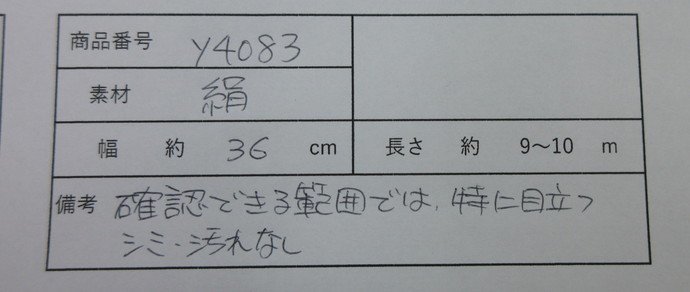 商品番号 Y4083
素材 絹
幅 約 36 cm 長さ 約 9～10 m
備考 確認できる範囲では、特に目立つ
シミ・汚れなし